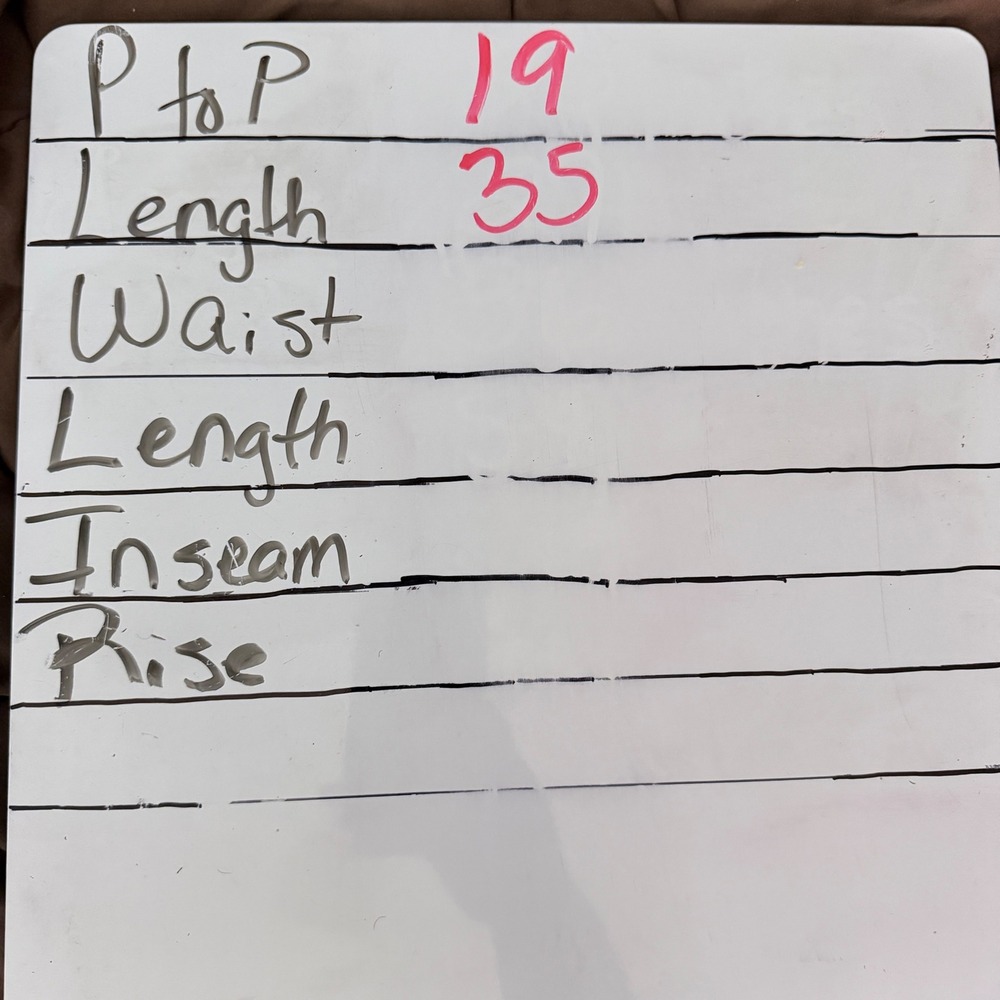 P to P 19
Length 35
Waist
Length
Inseam
Rise